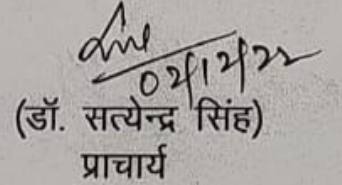 02/12/22
(डॉ. सत्येन्द्र सिंह)
प्राचार्य